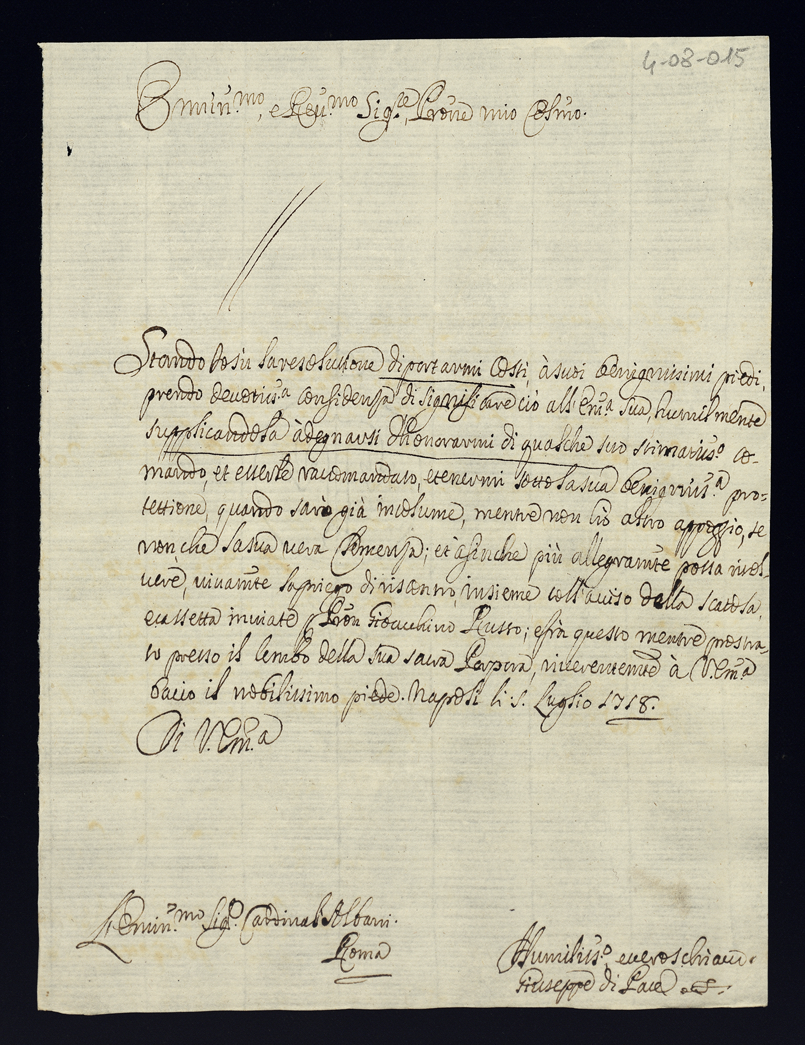 4-08-015
Emin.mo, e Reu.mo Sig.re, Prone mio Colmo.
Stando Io sù la resolutione di portarmi Costì, à suoi benignissimi piedi,
prendo deuotiss.a confidenza di significare ciò all'Em.a Sua, humilmente
supplicandola à degnarsi d'honorarmi di qualche suo stimatiss.o co-
mando, et esserle racomandato, e tenermi sotto la sua benigniss.a pro-
tettione, quando sarò già incolume, mentre non hò altro appoggio, se
non che la sua uera Clemenza; et à finche più allegramte possa riceu-
uere, uiuamte la priego di riscontro, insieme coll'auiso della scatola,
e cassetta inuiate Pron Gioacchino Russo; e frà questo mentre prostra-
to presso il lembo della sua sacra Porpora, riuerentemte à V. Em.a
bacio il nobilissimo piede. Napoli li 5. Luglio 1718.
Di V. Em.a
L'Emin.mo Sig.r Cardinal Albani.
Roma
Humiliss.o, e uero schiauo.
Giuseppe di Pace